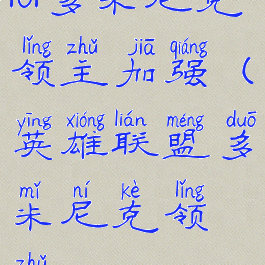 lol多米尼克
lǐng zhǔ jiā qiáng
领主加强（
yīng xióng lián méng duō
英雄联盟多
mǐ ní kè lǐng
米尼克领
zhǔ